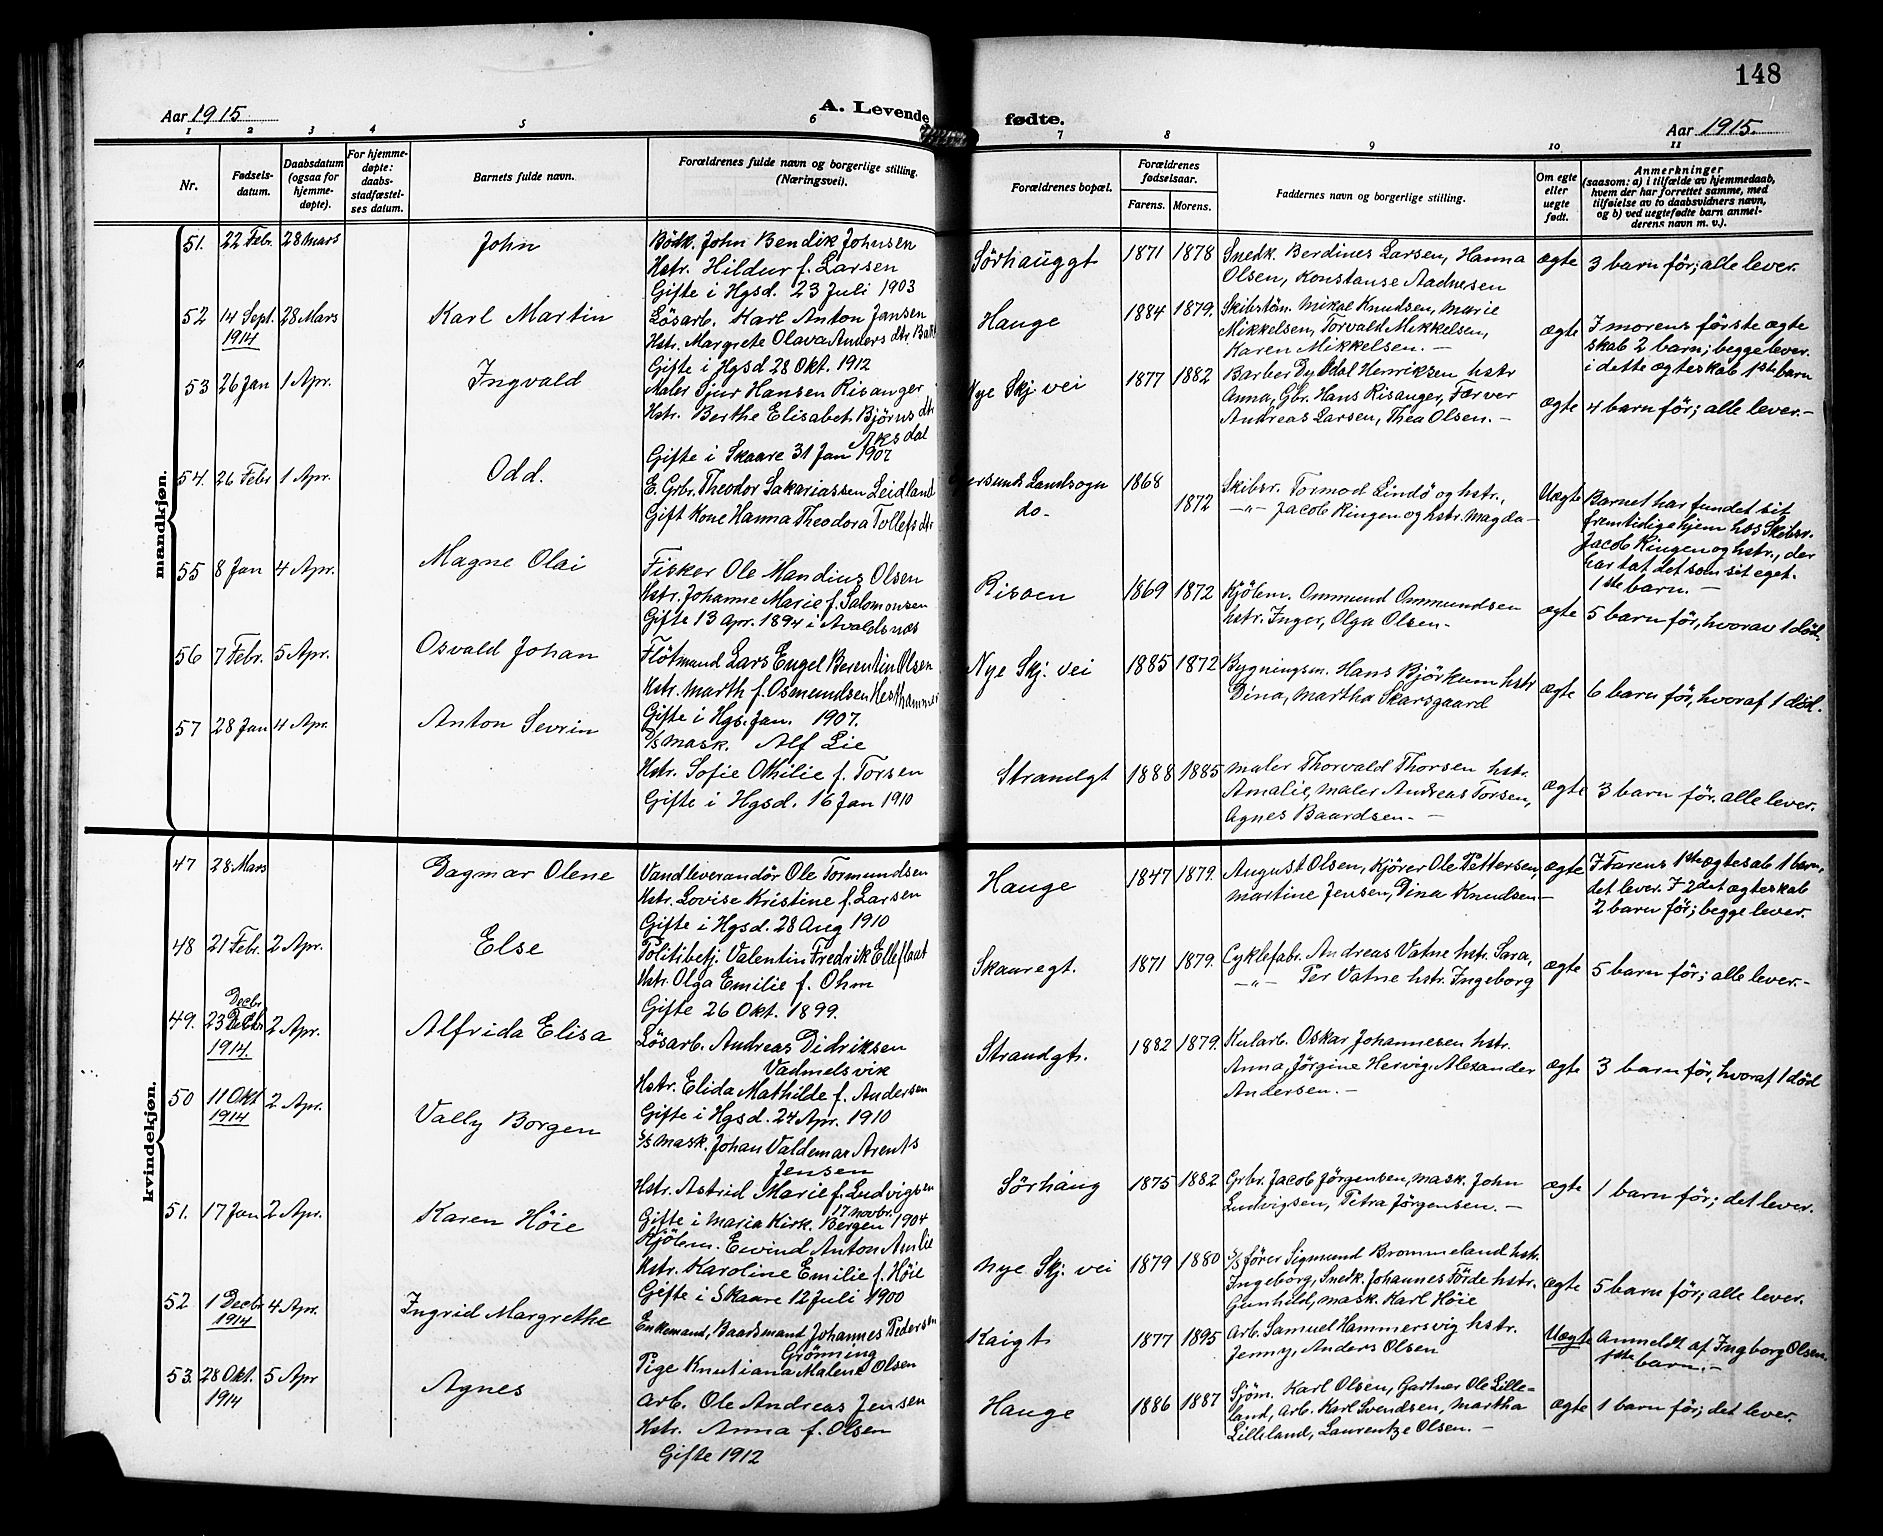 148
Aar 1915.
A. Levende
fødte.
Aar 1915.
1 2 3 4 5 6 7 8 9 10 11
Nr.
Fødsels-
datum.
Daabsdatum
(ogsaa for
hjemme-
døpte).
For hjemme-
døpte:
daabs-
stadfæstel-
ses datum.
Barnets fulde navn.
Forældrenes fulde navn og borgerlige stilling.
(Næringsvei).
Forældrenes bopæl.
Forældrenes
fødselsaar.
Farens. Morens.
Faddernes navn og borgerlige stilling.
Om egte
eller
uegte
født.
Anmerkninger
(saasom: a) i tilfælde av hjemmedaab,
hvem der har forrettet samme, med
tilføielse av to daabsvidners navn,
og b) ved uegtefødte barn anmel-
derens navn m. v.).
mandkjøn.
51. 22 Febr. 28 Mars
John
Bødk. John Bendik Johnsen
Hstr. Hildur f. Larsen
Gifte i Hgsd. 23 Juli 1903
Sørhauggt
1871 1878
Snedk. Berdines Larsen, Hanna
Olsen, Konstanse Aadnesen
ægte
3 barn før; alle lever.
52 14 Sept. 28 Mars
1914
Karl Martin
Løsarb. Karl Anton Jansen
Hstr. Margrete Olava Anders dtr
Gifte i Hgsd 28 Okt. 1912
Hauge
1884 1879.
Skibstøm. Mikal Knudsen, Marie
Mikkelsen, Torvald Mikkelsen,
Karen Mikkelsen. —
ægte
I morens første ægte
skab 2 barn; begge lever.
i dette ægteskab 1ste barn
53 26 Jan 1 Apr.
Ingvald
Maler Sjur Hansen Risanger
Hstr. Berthe Elisabet Bjørns dtr
Aksdal
Gifte i Skaare 31 Jan 1907
Nye Skj vei
1877 1882
Barber Dyddal Henriksen hstr
Anna, Gbr. Hans Risanger, Færver
Andreas Larsen, Thea Olsen. —
ægte
4 barn før; alle lever. —
54. 26 Febr 1 Apr.
Odd.
E. Grbr. Theodor Sakariassen Leidland
Gift Kone Hanna Theodora Tollefs dtr
Landsogn
do.
1868
1872
Skibsr. Tormod Lindø og hstr.,
—"— Jacob Ringen og hstr. Magda —
Uægte
Barnet har fundet sit
fremtidige hjem hos Skibsr.
Jacob Ringen og hstr., der
har tat det som sit eget.
1ste barn. —
55 8 Jan 4 Apr.
Magne Olai
Fisker Ole Mandius Olsen
Hstr. Johanne Marie f. Salomonsen
Gifte 13 Apr. 1894 i Avaldsnæs
Risøen
1869 1872
Kjølem. Ommund Ommundsen
hstr. Inger, Olga Olsen. —
ægte
5 barn før, hvorav 1 død.
56 7 Febr. 5 Apr.
Osvald Johan
Fløtmand Lars Engel Berentin Olsen
Hstr. Marth f. Osmundsen Hesthammer
Gifte i Hgs. Jan. 1907.
Nye Skj. vei
1885 1872
Bygningsm. Hans Bjørkum hstr
Dina, Martha Skarsgaard
ægte
6 barn før, hvoraf 1 død.
57 28 Jan 4 Apr.
Anton Sevrin
D/S mask. Alf Lie
Hstr. Sofie Othilie f. Torsen
Gifte i Hgsd. 16 Jan 1910
Strandgt
1888 1885
Maler Thorvald Thorsen hstr.
Amalie, maler Andreas Torsen,
Agnes Baardsen. —
ægte
3 barn før. alle lever.
kvindekjøn.
47 28 Mars
Dagmar Olene
Vandleverandør Ole Tormundsen
Hstr. Lovise Kristine f. Larsen
Gifte i Hgsd. 28 Aug 1910
Hauge
1847 1879.
August Olsen, Kjører Ole Pettersen,
Martine Jensen, Dina Knudsen —
ægte
I Farens 1ste ægtesab 1 barn,
det lever. I 2det ægteskab
2 barn før; begge lever.
48 21 Febr. 2 Apr.
Else
Politibetj. Valentin Fredrik Elleflaat
Hstr. Olga Emilie f. Ohm
Gifte 26 Okt. 1899.
Skaaregt.
1871 1879.
Cyklefabr. Andreas Vatne hstr. Sara,
—"— Per Vatne hstr. Ingeborg
ægte
5 barn før; alle lever. —
49. 23 Decbr 2 Apr.
1914.
Alfrida Elisa
Løsarb. Andreas Didriksen
Vadmelsvik
Hstr. Elida Mathilde f. Andersen
Gifte i Hgsd. 24 Apr. 1910
Strandgt.
1882 1879.
Kularb. Oskar Johannesen hstr.
Anna, Jørgine Hervig, Alexander
Andersen. —
ægte
3 barn før, hvoraf 1 død
50 11 Okt 2 Apr.
1914
Vally Borgen
D/S Mask. Johan Valdemar Arents
Jensen
Hstr. Astrid Marie f. Ludvigsen
17 Novbr.
Gifte i Maria Kirk. Bergen 1904
Sørhaug
1875 1882
Grbr. Jacob Jørgensen, mask. John
Ludvigsen, Petra Jørgensen. —
ægte
1 barn før; det lever.
51. 17 Jan 2 Apr.
Karen Høie
Kjølem. Eivind Anton Amlie
Hstr. Karoline Emilie f. Høie
Gifte i Skaare 12 Juli 1900
Nye Skj. vei
1879 1880
D/S fører Sigmund Brommeland hstr.
Ingeborg, Snedk. Johannes Førde hstr.
Gunhild, mask. Karl Høie
ægte
5 barn før; alle lever.
52 1 Decbr 4 Apr.
1914
Ingrid Margrethe
Enkemand, Baadsmand Johannes Pedersen
Grønning
Pige Knutiana Malene Olsen
Kaigt
1877 1895
Arb. Samuel Hammersvig hstr.
Jenny, Anders Olsen
Uægte
Anmeldt af Ingborg Olsen.
1ste barn. —
53. 28 Okt. 5 Apr
1914
Agnes
Arb. Ole Andreas Jensen
Hstr. Anna f. Olsen
Gifte 1912
Hauge
1886 1887
Sjøm. Karl Olsen, Gartner Ole Lille-
land, Arb. Karl Svendsen, Martha
Lilleland, Laurentze Olsen. —
ægte
1 barn før; det lever.